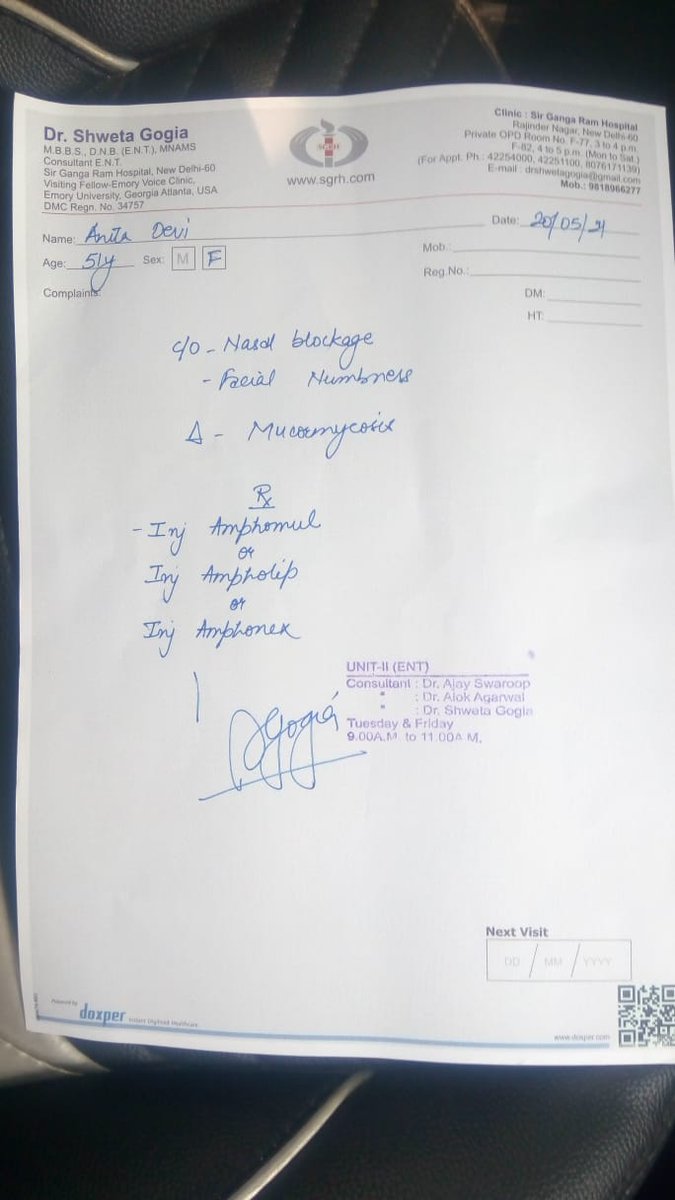 Dr. Shweta Gogia
M.B.B.S., D.N.B. (E.N.T.), MNAMS
Consultant E.N.T.
Sir Ganga Ram Hospital, New Delhi-60
Visiting Fellow-Emory Voice Clinic,
Emory University, Georgia Atlanta, USA
DMC Regn. No. 34757
SGRH
www.sgrh.com
Clinic : Sir Ganga Ram Hospital
Rajinder Nagar, New Delhi-60
Private OPD Room No. F-77, 3 to 4 p.m.
F-82, 4 to 5 p.m. (Mon to Sat.)
(For Appt. Ph.: 42254000, 42251100, 8076171139)
E-mail : drshwetagogia@gmail.com
Mob.: 9818966277
Name: Anita Devi
Date: 20/05/21
Age: 51y Sex: M F
Mob.:
Reg.No.:
Complaints:
DM:
HT:
c/o - Nasal blockage
- Facial Numbness
Δ - Mucormycosis
Rx
- Inj Amphomul
or
Inj Ampholip
or
Inj Amphonex
Gogia
UNIT-II (ENT)
Consultant : Dr. Ajay Swaroop
" : Dr. Alok Agarwal
" : Dr. Shweta Gogia
Tuesday & Friday
9.00A.M. to 11.00A.M.
Next Visit
DD / MM / YYYY
Powered by doxper
www.doxper.com